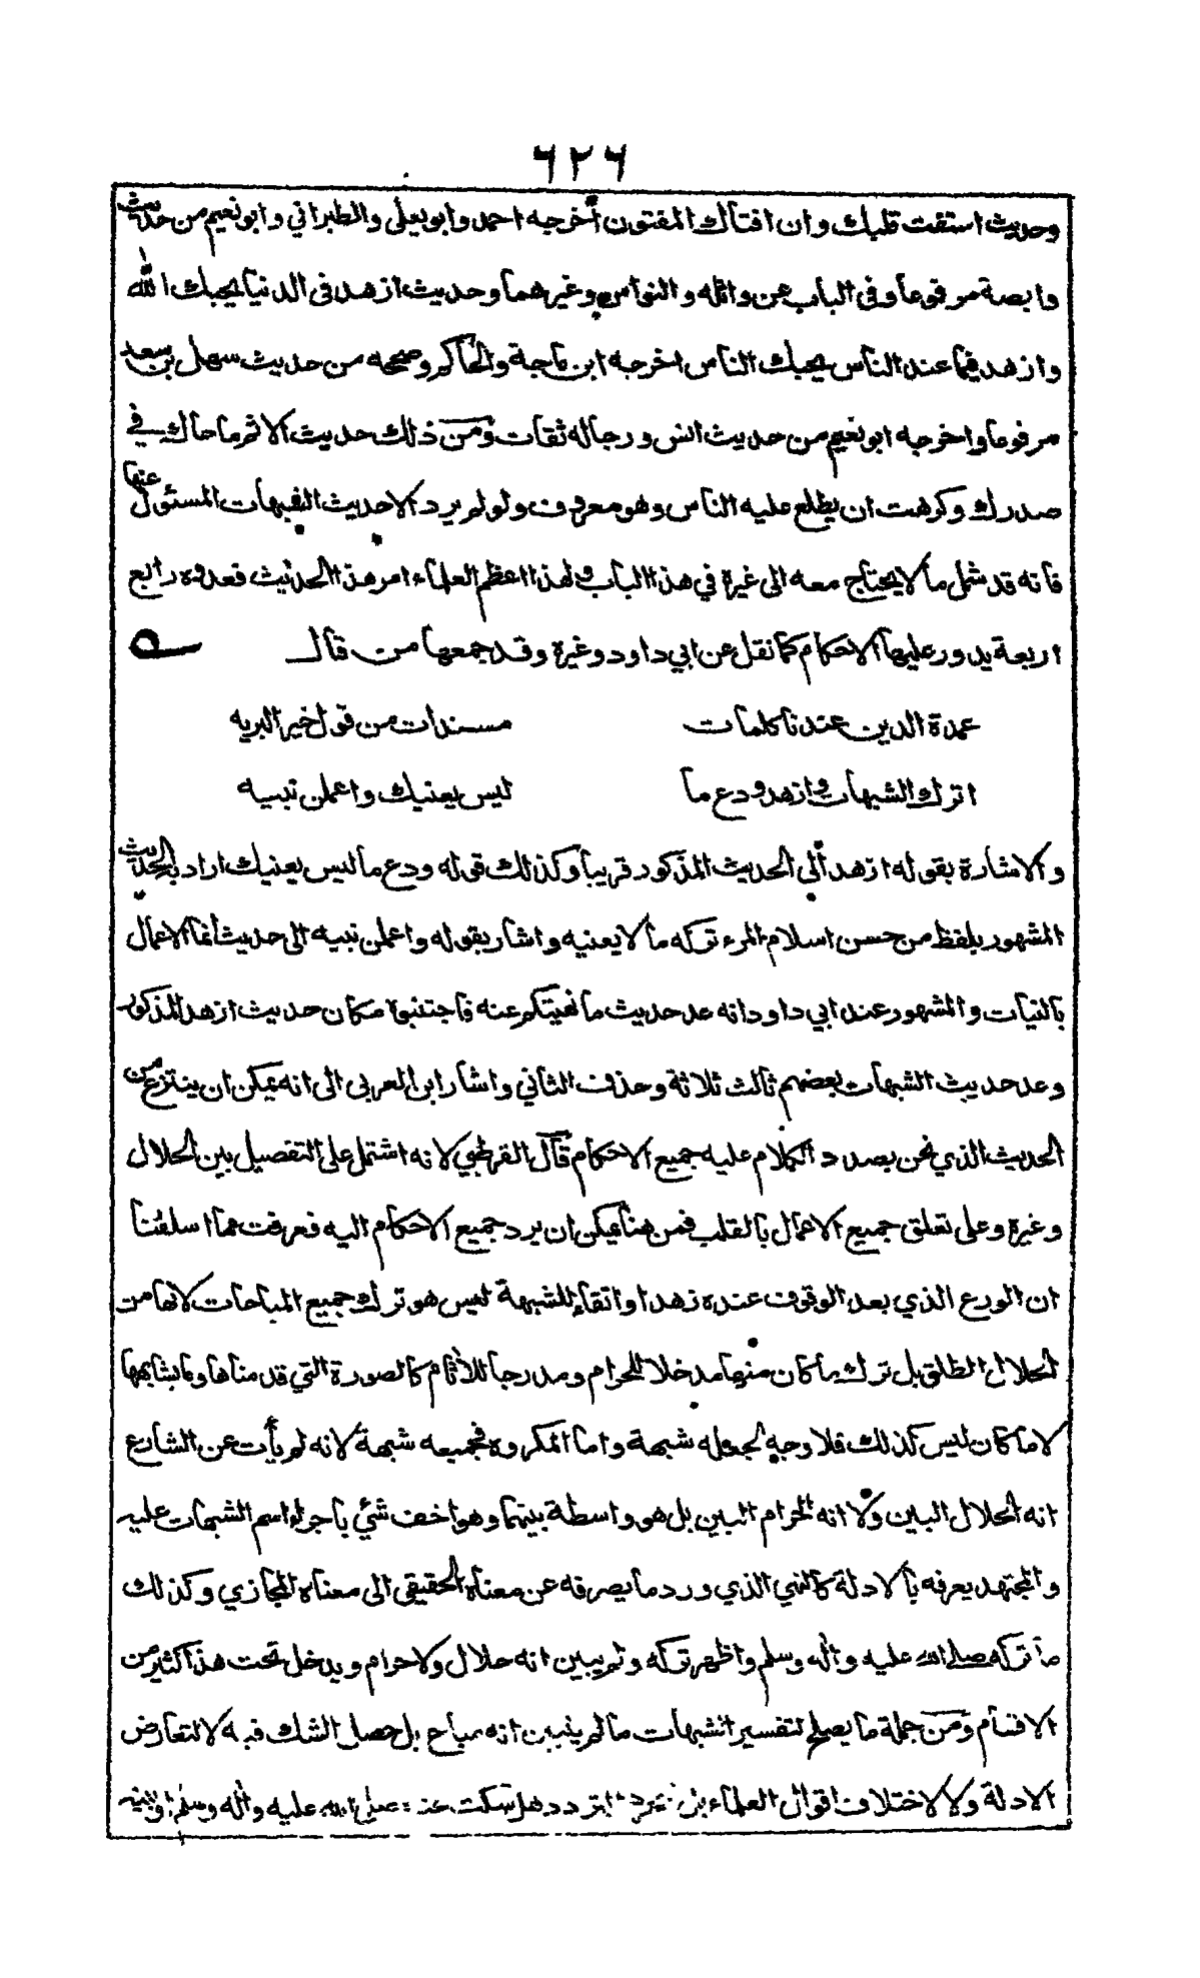 ٦٢٦
وحديث استفت قلبك وان افتاك المفتون أخرجه احمد وابويعلى والطبراني وابونعيم من حديث
وابصة مرفوعا وفى الباب عن واثلة والنواس وغيرهما وحديث ازهد فى الدنيا يحبك الله
وازهد فيما عند الناس يحبك الناس اخرجه ابن ماجة والحاكم وصححه من حديث سهل بن سعد
مرفوعا واخرجه ابونعيم من حديث انس ورجاله ثقات ومن ذلك حديث الاثم ماحاك في
صدرك وكرهت ان يطلع عليه الناس وهو معروف ولو لم يرد الاحديث الشبهات المسئول عنها
فانه قد شمل مالايحتاج معه الى غيرة في هذا الباب ولهذا اعظم العلماء امر هذا الحديث فعدوه رابع
اربعة يدور عليها الاحكام كما نقل عن ابي داود وغيرة وقد جمعها من قال
عمدة الدين عندنا كلمات مسندات من قول خير البريه
اترك الشبهات وازهد ودع ما ليس يعنيك واعملن بنيه
والاشارة بقوله ازهد ألى الحديث المذكور قريبا وكذلك قوله ودع ماليس يعنيك اراد به الحديث
المشهور بلفظ من حسن اسلام المرء تركه مالا يعنيه واشار بقوله واعملن بنيه الى حديث انما الاعمال
بالنيات والمشهور عند ابي داود انه عد حديث مانهيتكم عنه فاجتنبوة مكان حديث ازهد المذكور
وعد حديث الشبهات بعضهم ثالث ثلاثة وحذف الثاني واشار ابن العربى الى انه يمكن ان ينتزع من
الحديث الذي نحن بصدد الكلام عليه جميع الاحكام قال القرطبي لانه اشتمل على التفصيل بين الحلال
وغيرة وعلى تعلق جميع الاعمال بالقلب فمن هنا يمكن ان يرد جميع الاحكام اليه فعرفت مما اسلفنا
ان الورع الذي بعد الوقوف عنده زهدا واتقاء للشبهة ليس هو ترك جميع المباحات لانها من
الحلال المطلق بل ترك ما كان منها مدخلا للحرام ومدرجا للأثام كالصورة التي قدمناها وما يشابهها
لا ما كان ليس كذلك فلا وجه لجعله شبهة واما المكروه فجميعه شبهة لانه لم يأت عن الشارع
انه الحلال البين ولا انه الحرام البين بل هو واسطة بينهما وهو اخف شئي باجراء اسم الشبهات عليه
والمجتهد يعرفه بالادلة كالنهي الذي ورد ما يصرفه عن معناه الحقيقى الى معناه المجازي وكذلك
ماتركه صلى الله عليه واله وسلم واظهر تركه ولم يبين انه حلال ولا حرام ويدخل تحت هذا كثير من
الاقسام ومن جملة ما يصلح لتفسير الشبهات مالم يتبين انه مباح بل حصل الشك فيه لا لتعارض
الادلة ولا لاختلاف اقوال العلماء بل التردد هل سكت عنه صلى الله عليه واله وسلم